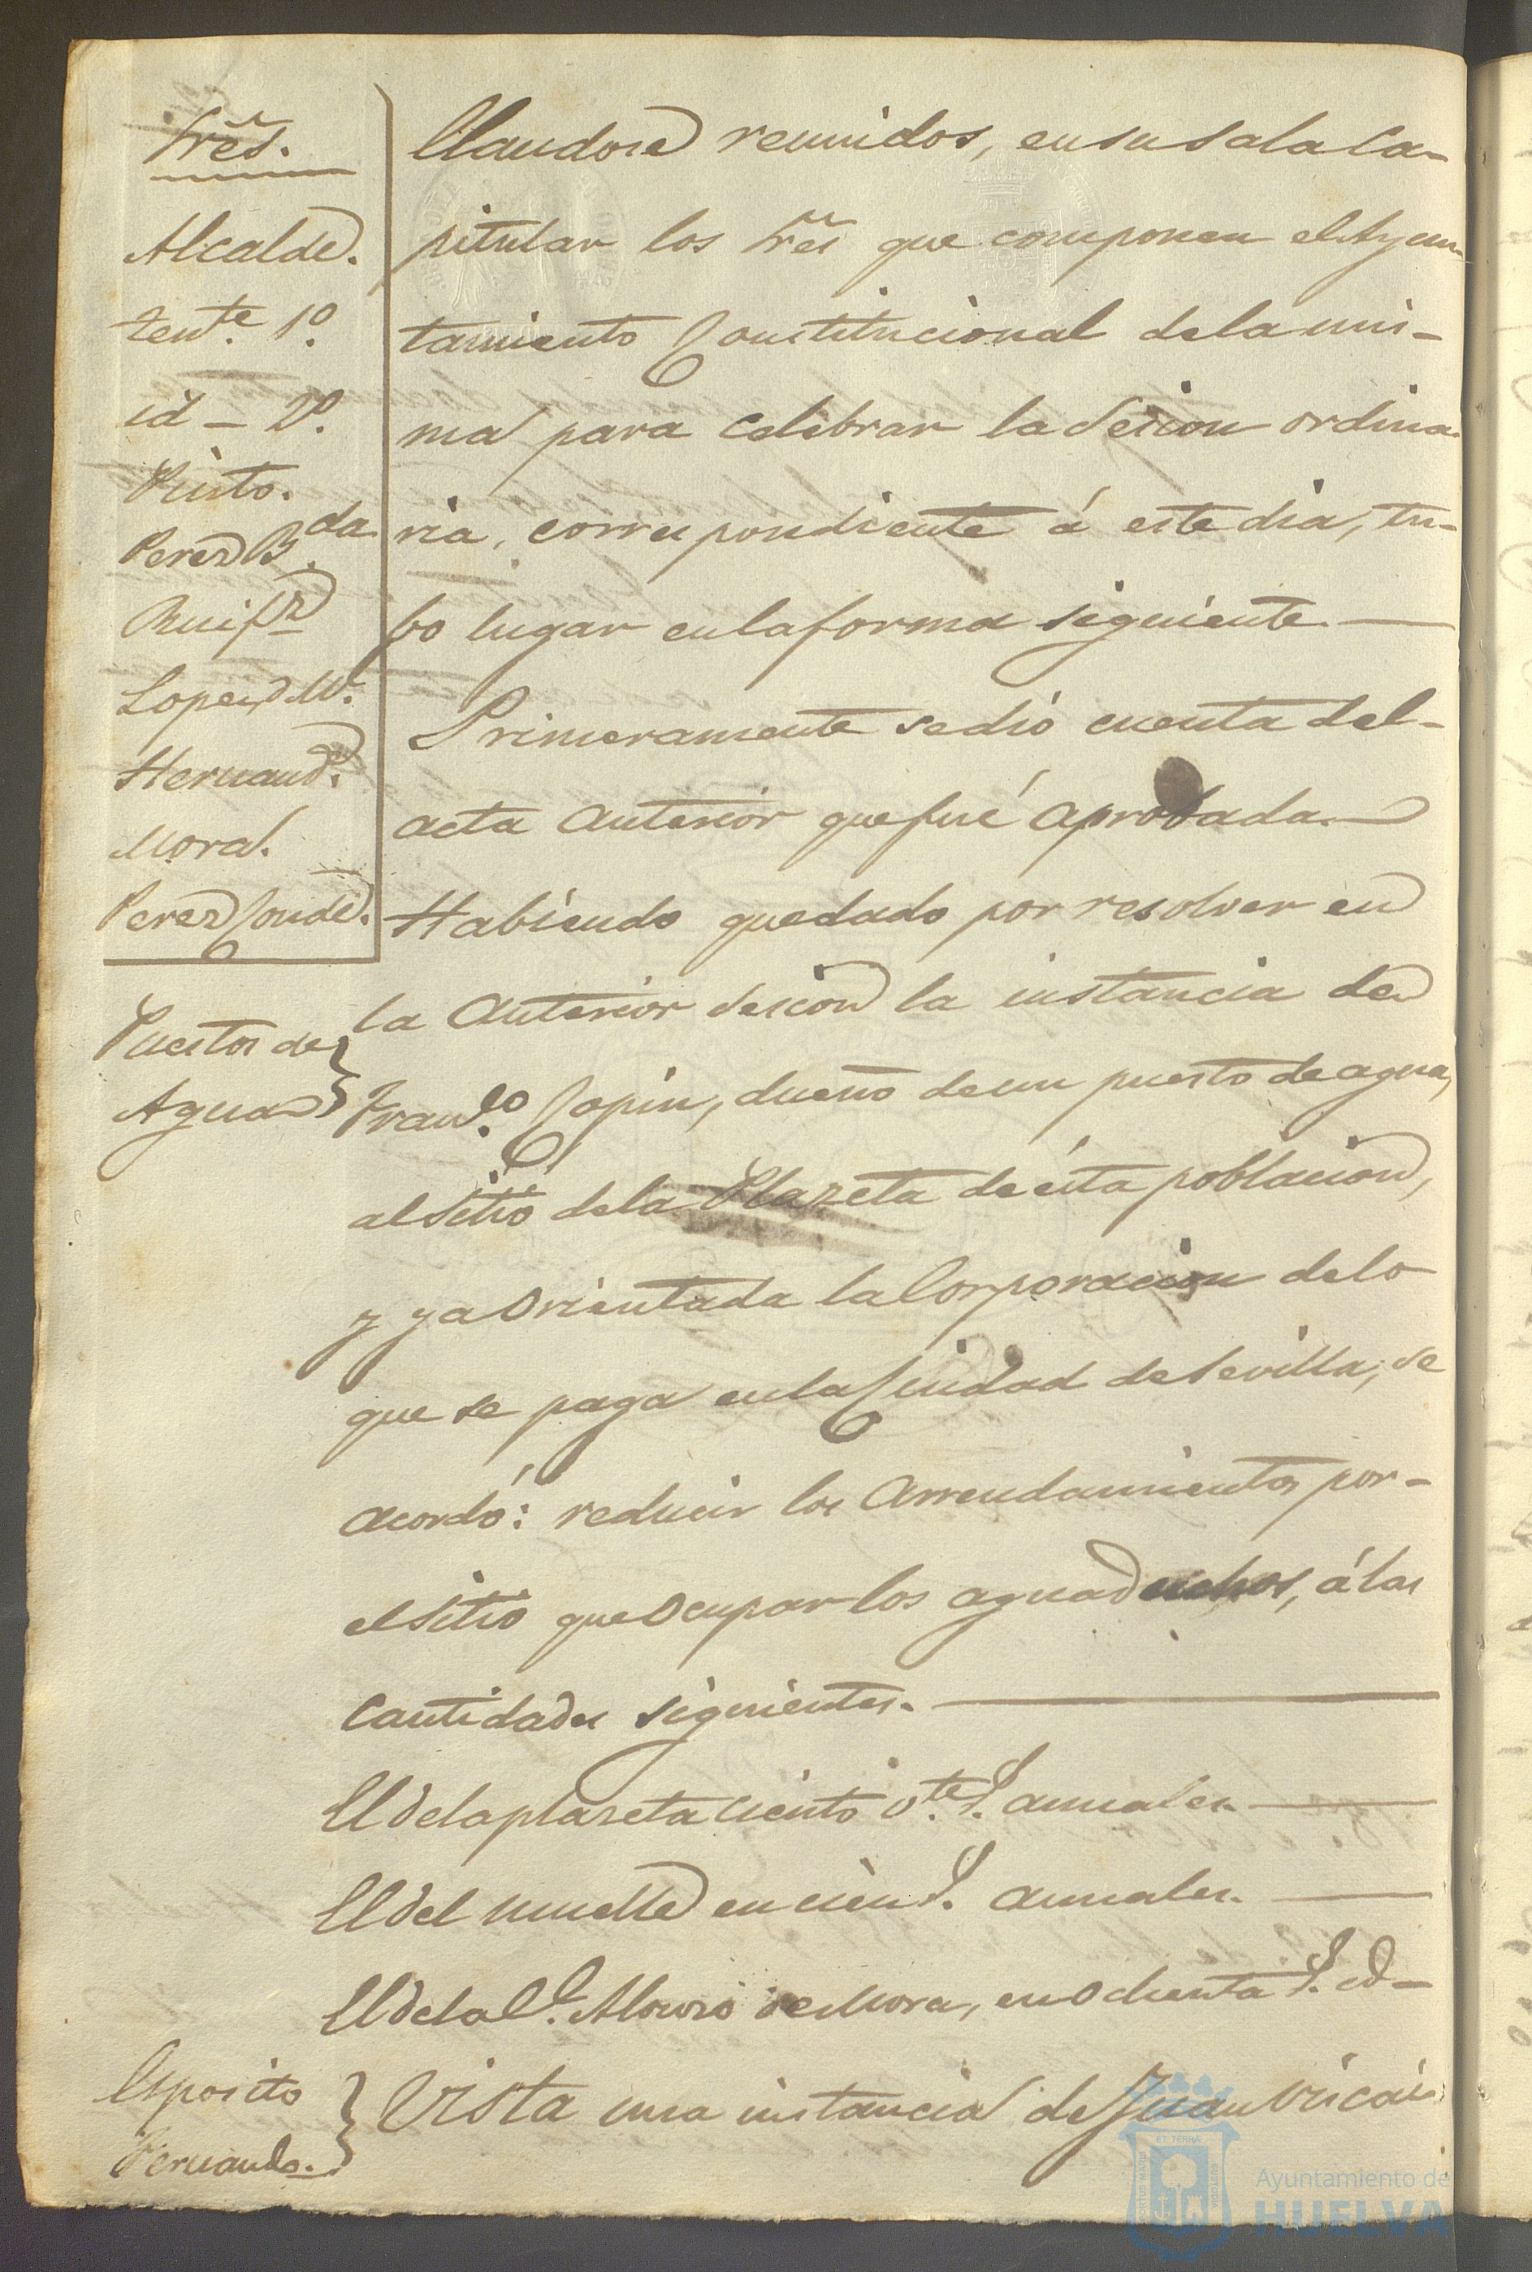 Sres.
Alcalde.
Tente. 1º.
id – 2º.
Pinto.
Perez B.da
Ruifz
Lopez M.
Hernand.
Mora.
Perez Conde.
Puestos de
Agua
Esposito
Fernando.
Llandose reunidos, en su sala Ca-
pitular los Sres que componen el Ayun-
tamiento Constitucional de la mis-
ma para celebrar la Sesion ordina-
ria, correspondiente á este dia, tu-
bo lugar en la forma siguiente —
Primeramente se dió cuenta del-
acta anterior que fué aprobada. —
Habiendo quedado por resolver en
la anterior sesion la instancia de
Franco. Copin, dueño de un puesto de agua,
al sitio de la Plazeta de ésta poblacion,
y ya Orientada la Corporacion de lo
que se paga en la Ciudad de Sevilla, se
acordó: reducir los Arrendamientos por-
el sitio que Ocupar los aguaduchos, á las
cantidades siguientes. —
El de la plazeta ciento vte. P. anuales. —
El del muelle en cien P. anuales. —
El de la C. Alonso de Mora, en Ochenta P. id –
Vista una instancia de Juan
Ayuntamiento de
HUELVA